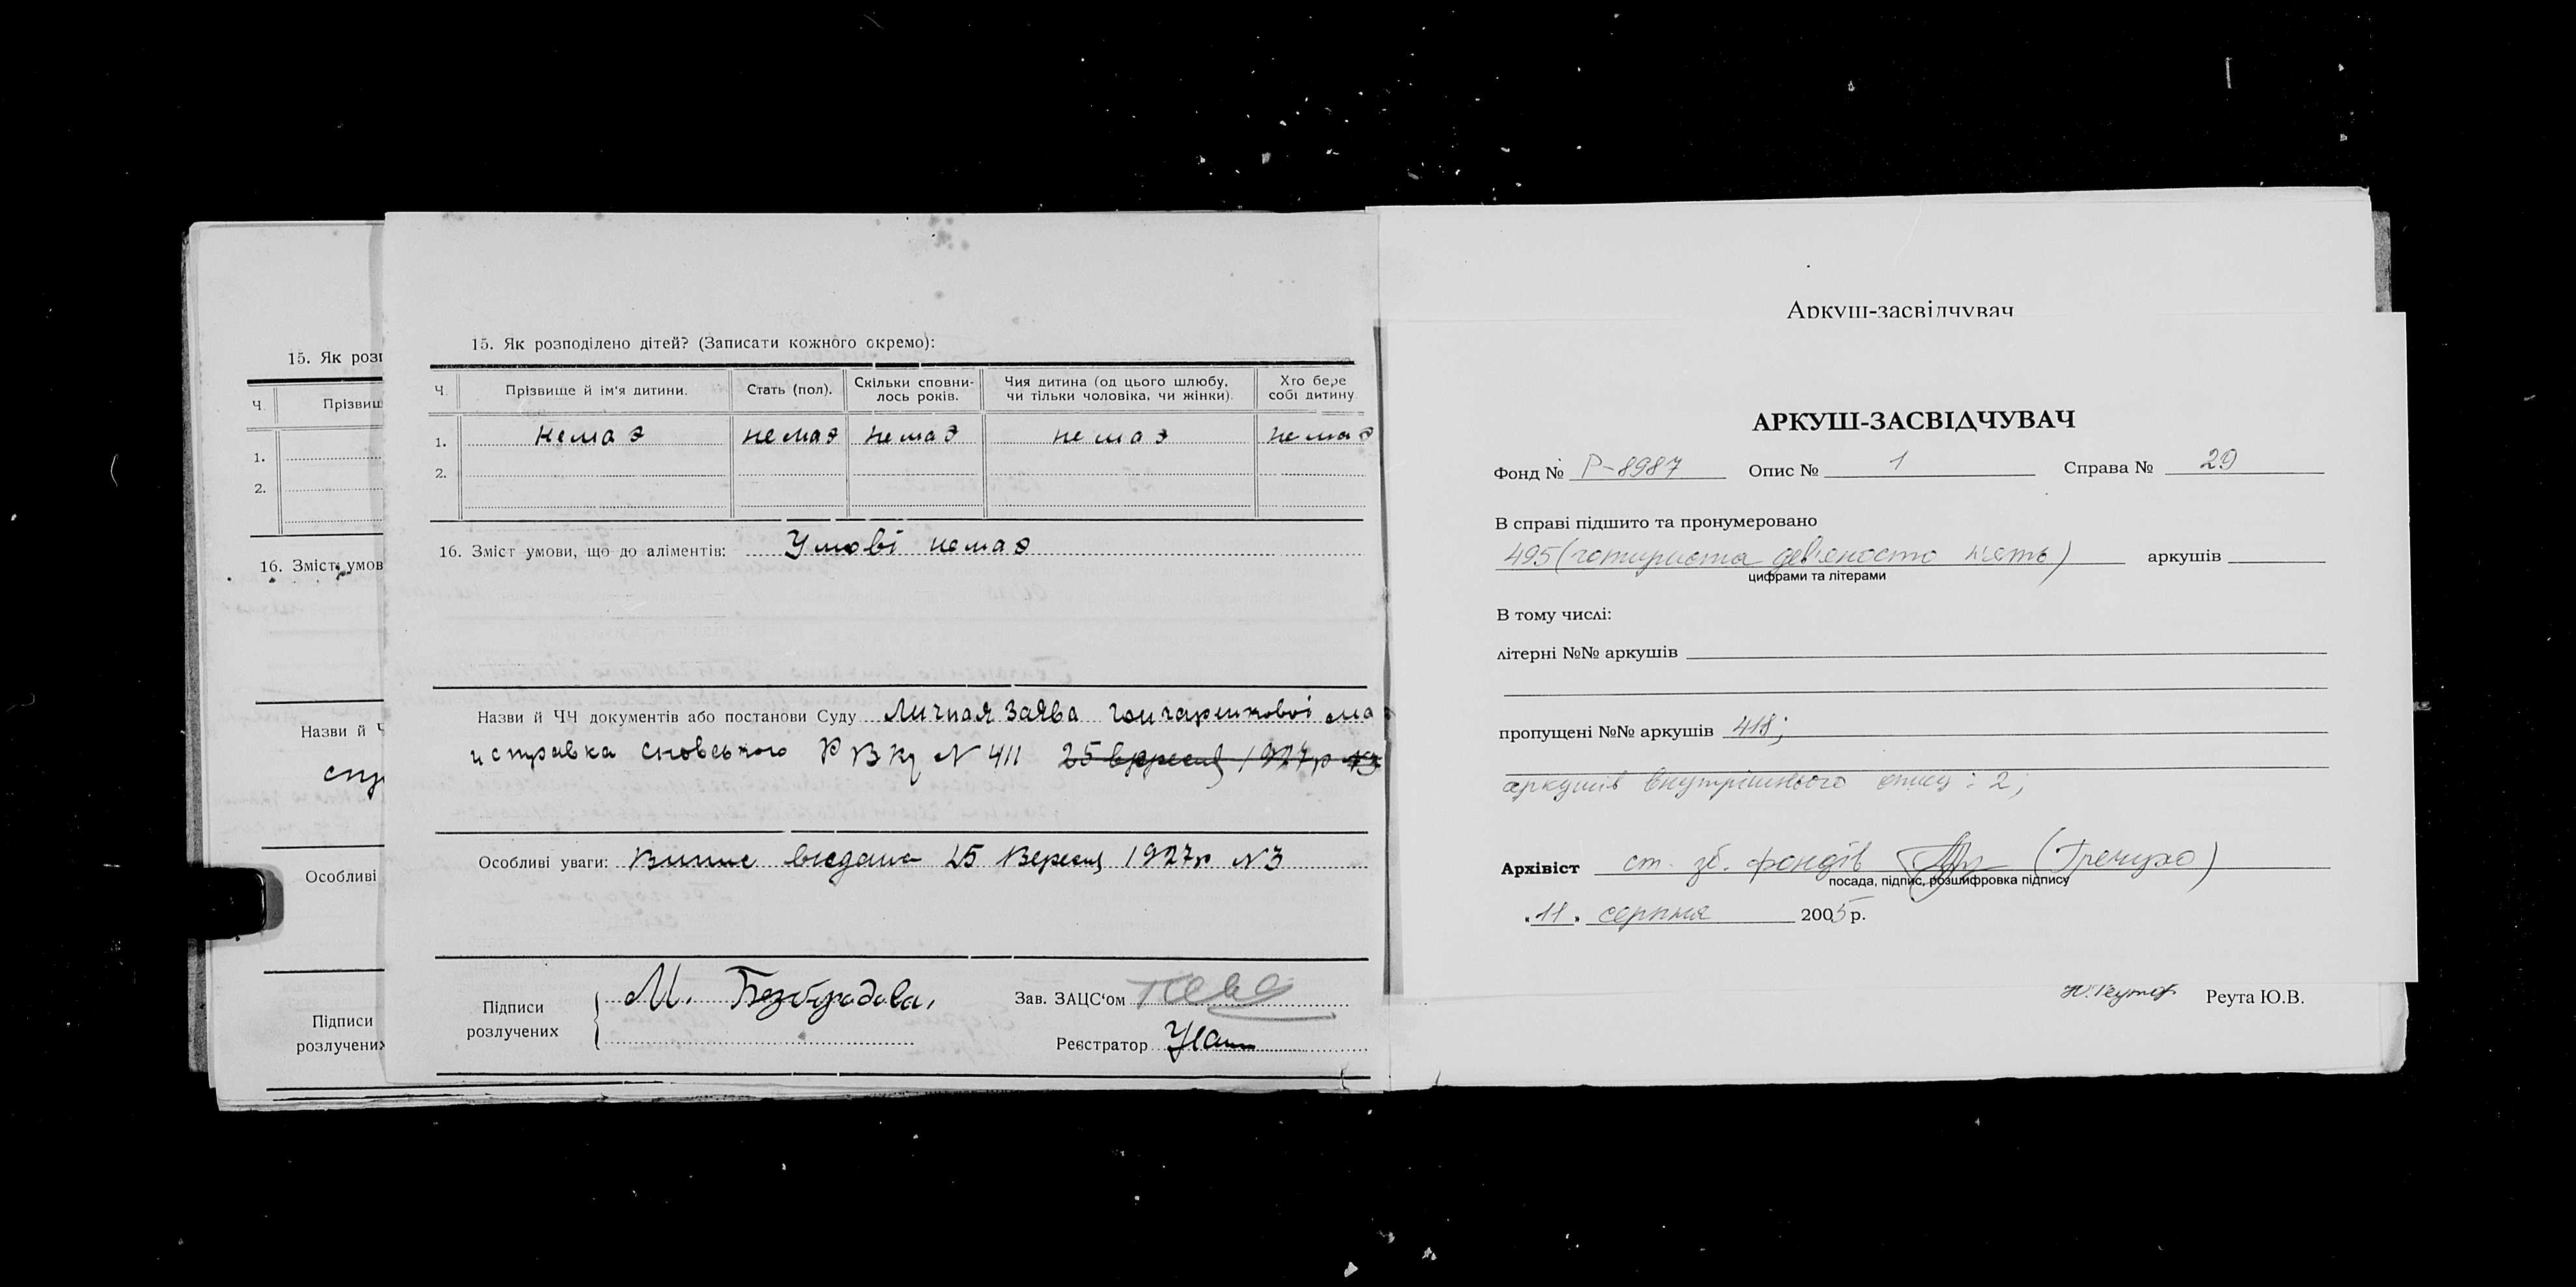 15. Як розп
Ч. Прізвищ
1.
2.
16. Зміст умов
Назви й Ч
спр
Особливі
Підписи
розлучених
15. Як розподілено дітей? (Записати кожного окремо):
Ч. Прізвище й ім'я дитини. Стать (пол). Скільки сповни- Чия дитина (од цього шлюбу, Хто бере
лось років. чи тільки чоловіка, чи жінки). собі дитину.
1. немає немає немає немає немає
2.
16. Зміст умови, що до аліментів: Умові немає
Назви й ЧЧ документів або постанови Суду Личная Заява
и справка сновського РВКу N 411 25 вересня 1927р N3
Особливі уваги: Випис видана 25 Вересня 1927р N3
Підписи
розлучених
М. Безбородова,
Зав. ЗАЦС'ом
Реєстратор
Аркуш-засвідчувач
АРКУШ-ЗАСВІДЧУВАЧ
Фонд № Р-8987 Опис № 1 Справа № 29
В справі підшито та пронумеровано
495 (чотириста дев'яносто п'ять) аркушів
цифрами та літерами
В тому числі:
літерні №№ аркушів
пропущені №№ аркушів 418;
аркушів внутрішнього опису: 2;
Архівіст ст. зб. фондів
посада, підпис, розшифровка підпису
"11" серпня 2005 р.
Реута Ю.В.